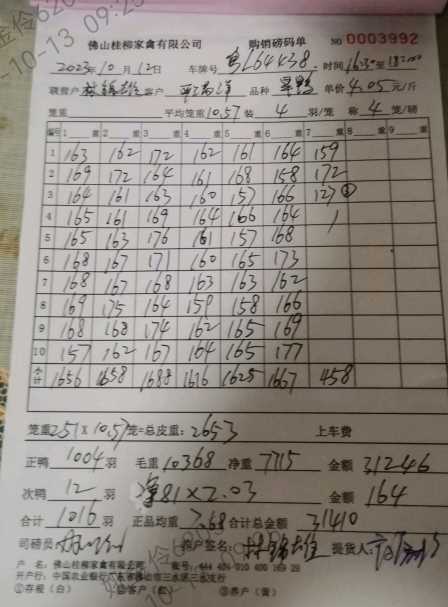 佛山桂柳家禽有限公司 购销磅码单 NO 0003992
2023年10月12日 车牌号 时间16:30至
联营户 客户 品种 单价4.05元/斤
笼重 平均笼重10.57 装4羽/笼 称4笼/磅
编号 1 重 2 重 3 重 4 重 5 重 6 重 7 重 8 重 9 重
1 163 162 172 162 161 164 159
2 169 172 164 161 168 158 172
3 164 161 163 160 157 166 127
4 165 161 169 164 166 164
5 165 163 176 161 157 168
6 168 167 171 160 165 173
7 168 167 168 163 163 162
8 169 175 164 159 158 166
9 168 168 174 162 165 169
10 157 162 167 164 165 177
小计 1656 1658 1688 1616 1625 1667 458
笼重251×10.57笼=总皮重:2653 上车费
正鸭1004羽 毛重10368 净重7715 金额31246
次鸭12羽 净81×2.03 金额164
合计1016羽 正品均重7.68 合计总金额31410
司磅员 客户签名: 提货人
户 名:佛山桂柳家禽有限公司
①存根(白) ②客户(红) ③养户(黄)